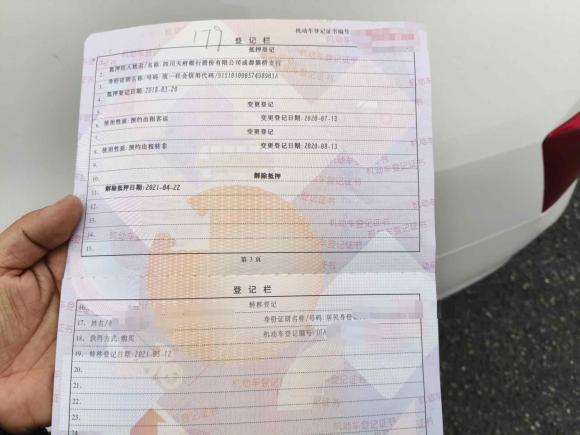 179
登记栏
机动车登记证书编号
抵押登记
1. 抵押权人姓名/名称:四川天府银行股份有限公司成都锦桥支行
2. 身份证明名称/号码:统一社会信用代码/
3. 抵押登记日期:2018-03-20
4. 变更登记
5. 使用性质:预约出租客运 变更登记日期:2020-07-13
变更登记
使用性质:预约出租转非 变更登记日期:2020-08-13
解除抵押
11. 解除抵押日期:2021-04-22
12.
13.
14.
15.
第 3 页
登记栏
16. 转移登记
17. 姓名/ 身份证明名称/号码:居民身份证
18. 获得方式:购买 机动车登记编号:川A
19. 转移登记日期:2021-05-12
20.
21.
22.
23.
机动车登记证书